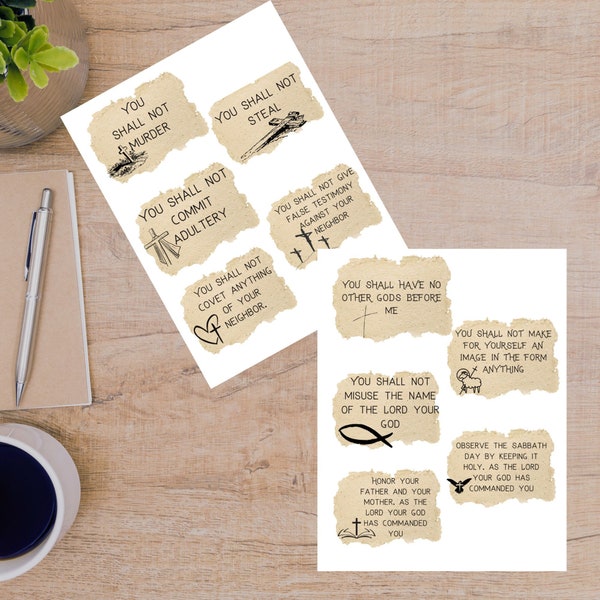 YOU
SHALL NOT
MURDER
YOU SHALL NOT
STEAL
YOU SHALL NOT
COMMIT
ADULTERY
YOU SHALL NOT GIVE
FALSE TESTIMONY
AGAINST YOUR
NEIGHBOR
YOU SHALL NOT
COVET ANYTHING
OF YOUR
NEIGHBOR.
YOU SHALL HAVE NO
OTHER GODS BEFORE
ME
YOU SHALL NOT MAKE
FOR YOURSELF AN
IMAGE IN THE FORM
ANYTHING
YOU SHALL NOT
MISUSE THE NAME
OF THE LORD YOUR
GOD
OBSERVE THE SABBATH
DAY BY KEEPING IT
HOLY, AS THE LORD
YOUR GOD HAS
COMMANDED YOU
HONOR YOUR
FATHER AND YOUR
MOTHER, AS THE
LORD YOUR GOD
HAS COMMANDED
YOU